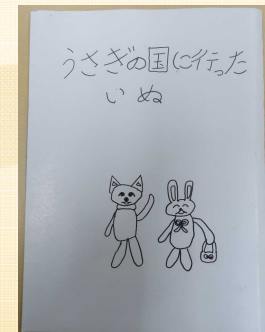 うさぎの国に行った
いぬ